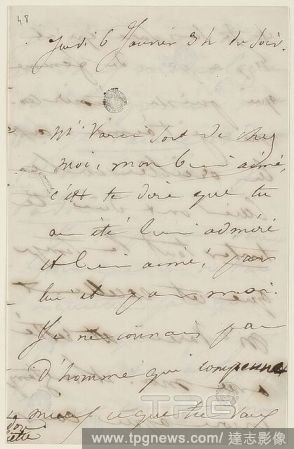 48
Jeudi 6 Janvier 3 h du soir.
Mr Varin sort de chez
moi, mon bien aimé,
c'est te dire que tu
as été bien admiré
et bien aimé, par
lui et par moi.
Je ne connais pas
d'homme qui comprenne
mieux ce que tu vaux
TPG
www.tpgnews.com / 達志影像